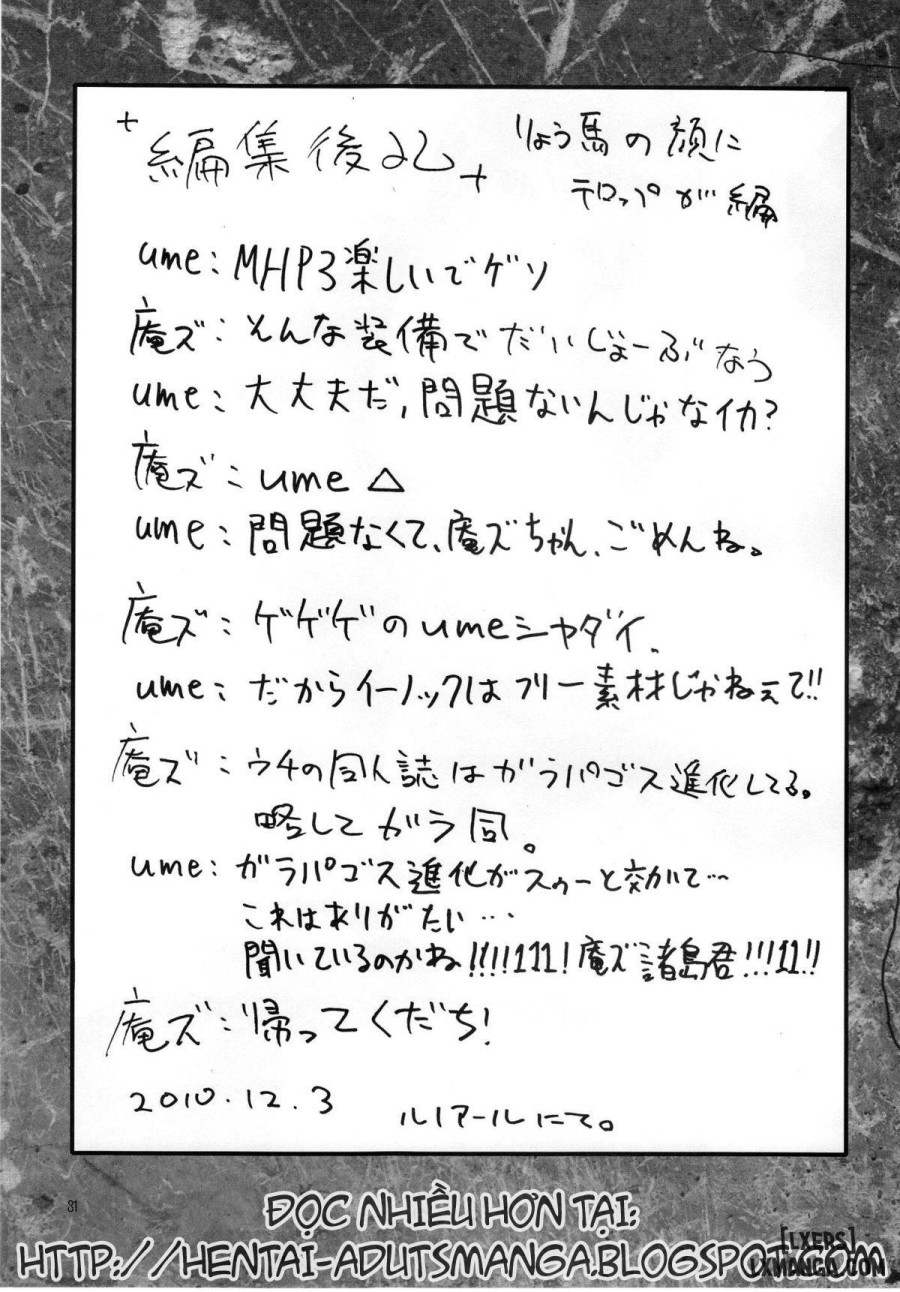 + 編集後記 +
りょう馬の顔に
テロップが編
ume: MHP3楽しいでゲソ
庵ズ: そんな装備でだいじょーぶなう
ume: 大丈夫だ, 問題ないんじゃなイカ?
庵ズ: ume △
ume: 問題なくて、庵ズちゃん、ごめんね。
庵ズ: ゲゲゲのumeシャダイ、
ume: だからイーノックはフリー素材じゃねぇて!!
庵ズ: ウチの同人誌はガラパゴス進化してる。
略してガラ同。
ume: ガラパゴス進化がスゥーと効いて…
これはありがたい…
聞いているのかね!!!!111! 庵ズ諸島君!!!11!!
庵ズ: 帰ってくだち!
2010.12.3 ルノアールにて。
31
ĐỌC NHIỀU HƠN TẠI:
HTTP://HENTAI-ADUTSMANGA.BLOGSPOT.COM
[LXERS]
LXMANGA.COM